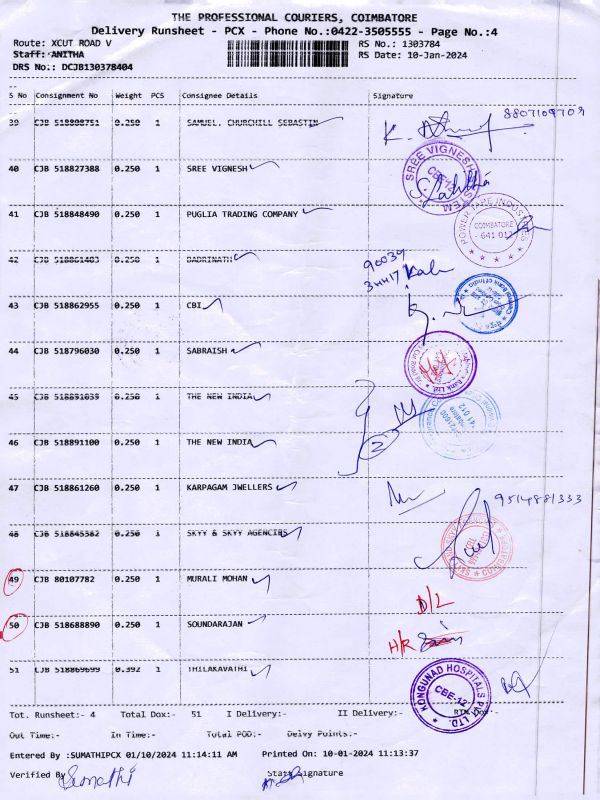 THE PROFESSIONAL COURIERS, COIMBATORE
Delivery Runsheet - PCX - Phone No.:0422-3505555 - Page No.:4
Route: XCUT ROAD V RS No.: 1303784
Staff: ANITHA RS Date: 10-Jan-2024
DRS No.: DCJB130378404
S No Consignment No Weight PCS Consignee Details Signature
39 CJB 518808751 0.250 1 SAMUEL. CHURCHILL SEBASTIN 8807109709
40 CJB 518827388 0.250 1 SREE VIGNESH
SREE VIGNESH
41 CJB 518848490 0.250 1 PUGLIA TRADING COMPANY
POWER TAPE INDUSTRIES COIMBATORE - 641 012
42 CJB 518861403 0.250 1 BADRINATH 90039
34417
43 CJB 518862955 0.250 1 CBI
44 CJB 518796030 0.250 1 SABRAISH
45 CJB 518891039 0.250 1 THE NEW INDIA
46 CJB 518891100 0.250 1 THE NEW INDIA 2
47 CJB 518861260 0.250 1 KARPAGAM JWELLERS 9514881333
48 CJB 518845382 0.250 1 SKYY & SKYY AGENCIES
49 CJB 80107782 0.250 1 MURALI MOHAN D/L
50 CJB 518688890 0.250 1 SOUNDARAJAN H/R
51 CJB 518869699 0.392 1 THILAKAVATHI
KONGUNAD HOSPITALS PVT. LTD. CBE-12
Tot. Runsheet:- 4 Total Dox:- 51 I Delivery:- II Delivery:- RTN Dox:-
Out Time:- In Time:- Total POD:- Delvy Points:-
Entered By :SUMATHIPCX 01/10/2024 11:14:11 AM Printed On: 10-01-2024 11:13:37
Verified By Sumathi Staff Signature